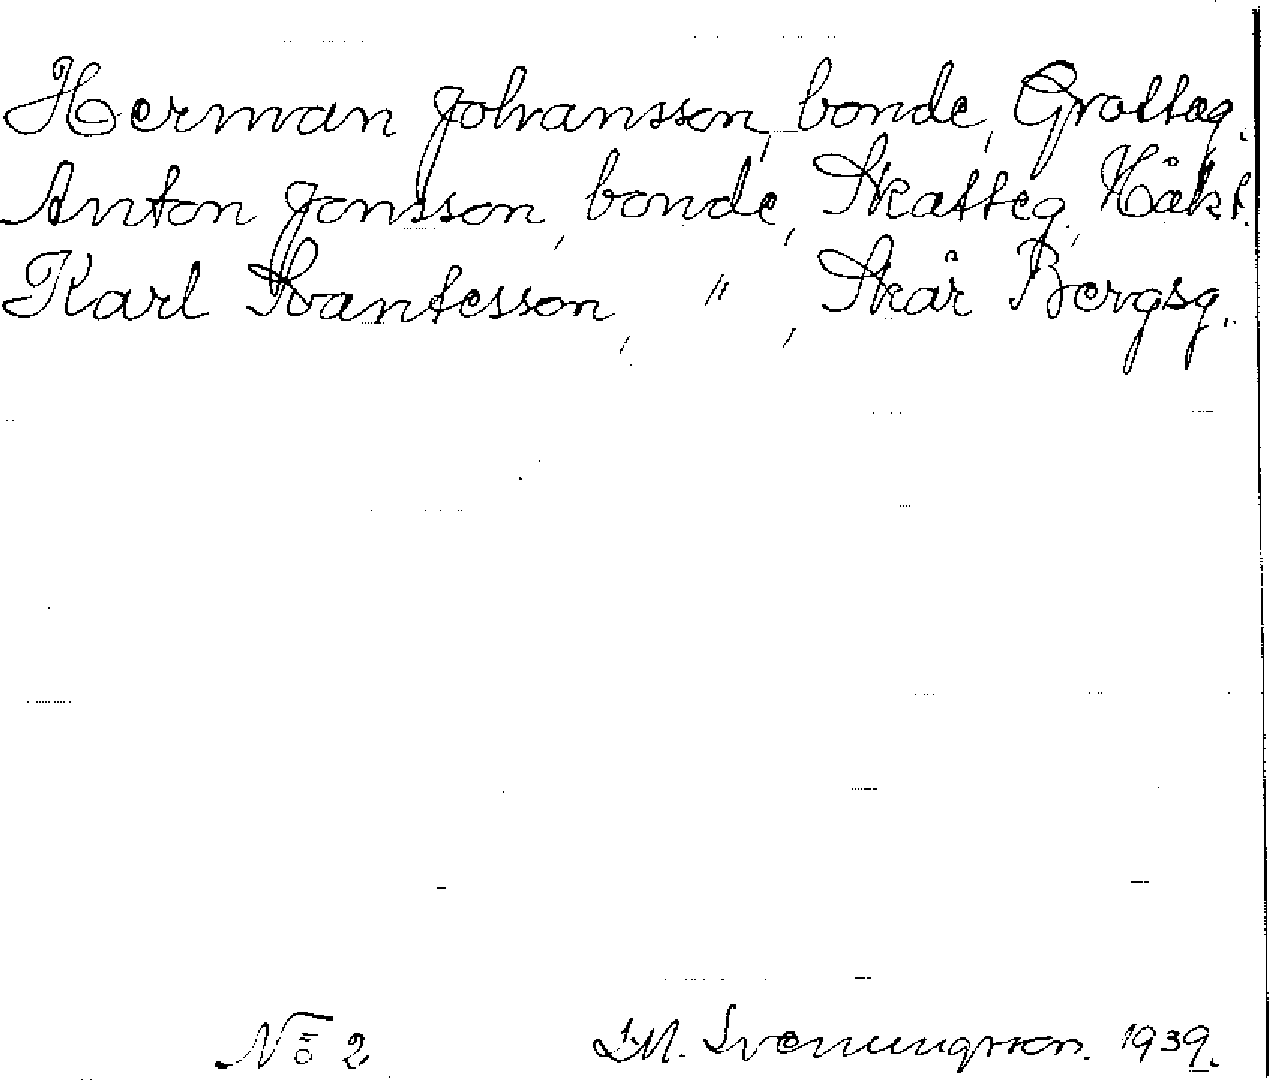 Herman Johansson, bonde, Grotteg.
Anton Jonsson, bonde, Skatteg, Håkt.
Karl Svantesson, " , Skår Bergsg.
No 2 I.M. Svenungsson. 1939.